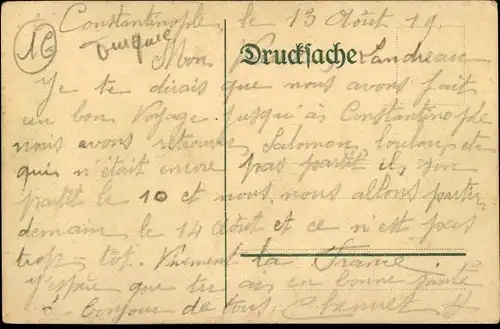 Constantinople, le 13 Août 19.
AG Turquie
Drucksache
Mon Landreau
Je te dirais que nous avons fait
un bon voyage jusqu'à Constantinople
nous avons retrouvé Salomon, Loulou,
qui n'était encore pas partit il son
partit le 10 et nous nous allons partir
demain le 14 Août et ce n'est pas
trop tôt. Vivement la France.
J'espère que tu as en bonne santé
bonjour de tous